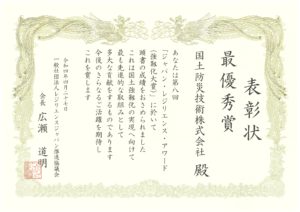 表彰状
最優秀賞
国土防災技術株式会社 殿
あなたは第八回
「ジャパン・レジリエンス・アワード
（強靭化大賞）」において
頭書の成績をおさめられました
これは国土強靭化の実現へ向けて
最も先進的な取組みとして
多大な貢献をするものであります
今後のさらなるご活躍を期待し
これを賞します
令和四年四月二十七日
一般社団法人レジリエンスジャパン推進協議会
会長 広瀬 道明